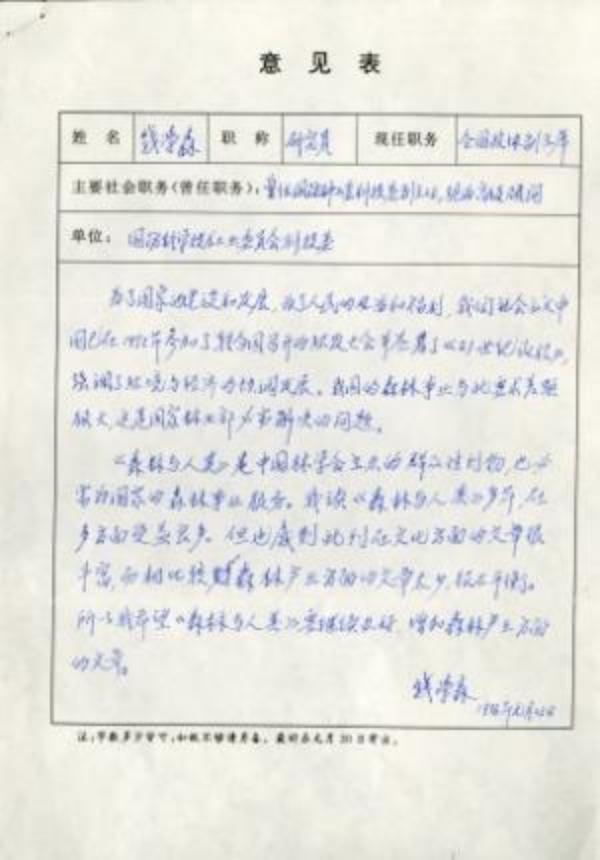 意见表
姓名 钱学森 职称 研究员 现任职务 全国政协副主席
主要社会职务(曾任职务):曾任国防科工委科技委副主任,现为高级顾问
单位: 国防科学技术工业委员会科技委
为了国家的建设和发展,为了人民的利益和福利,我们社会主义中
国已在1992年参加了联合国召开的环发大会并签署了《21世纪议程》,
强调了环境与经济的协调发展。我国的森林事业与此要求差距
很大,这是国家林业部必须解决的问题。
《森林与人类》是中国林学会主办的群众性刊物,也必
须为国家的森林事业服务。我读《森林与人类》多年,在
多方面受益良多。但也感到此刊在文化方面的文章很
丰富,而相比较,森林产业方面的文章太少,不平衡。
所以我希望《森林与人类》要继续办好,增加森林产业方面
的文章。
钱学森
注:字数多少皆可,如纸不够请另备。最好在元月30日寄出。